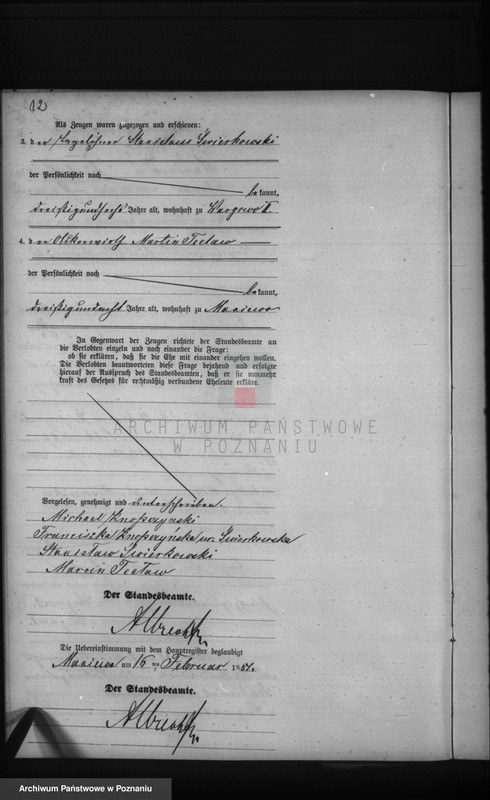 12
Als Zeugen waren zugezogen und erschienen:
3. der Tagelöhner Stanislaus Świerkowski
der Persönlichkeit nach
bekannt,
dreißigundsechs Jahre alt, wohnhaft zu Wargowo I.
4. der Martin Tectaw
der Persönlichkeit nach
bekannt,
dreißigundacht Jahre alt, wohnhaft zu
In Gegenwart der Zeugen richtete der Standesbeamte an
die Verlobten einzeln und nach einander die Frage:
ob sie erklären, daß sie die Ehe mit einander eingehen wollen.
Die Verlobten beantworteten diese Frage bejahend und erfolgte
hierauf der Ausspruch des Standesbeamten, daß er sie nunmehr
kraft des Gesetzes für rechtmäßig verbundene Eheleute erkläre.
ARCHIWUM PAŃSTWOWE
W POZNANIU
Vorgelesen, genehmigt und unterschrieben.
Michael
Franciszka ur. Świerkowska
Stanisław Świerkowski
Marcin Tectaw
Der Standesbeamte.
Albrecht
Die Uebereinstimmung mit dem Hauptregister beglaubigt
am 16 ten Februar 18
Der Standesbeamte.
Albrecht
Archiwum Państwowe w Poznaniu